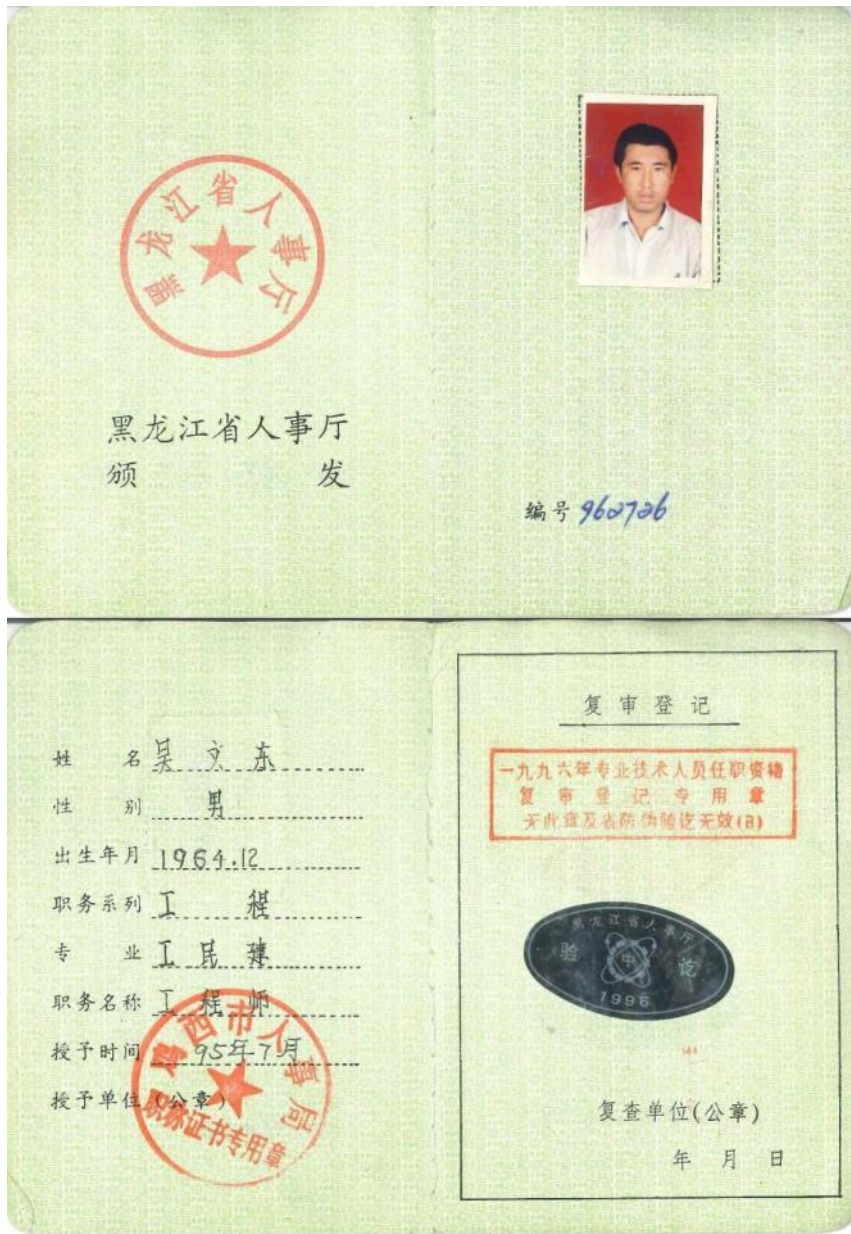 黑龙江省人事厅
黑龙江省人事厅
颁发
编号 962726
姓名 吴文东
性别 男
出生年月 1964.12
职务系列 工程
专业 工民建
职务名称 工程师
授予时间 95年7月
授予单位(公章)
鸡西市人事局
职称证书专用章
复审登记
一九九六年专业技术人员任职资格
复审登记专用章
无此章及省防伪验讫无效(B)
黑龙江省人事厅
验 中 讫
1996
复查单位(公章)
年 月 日